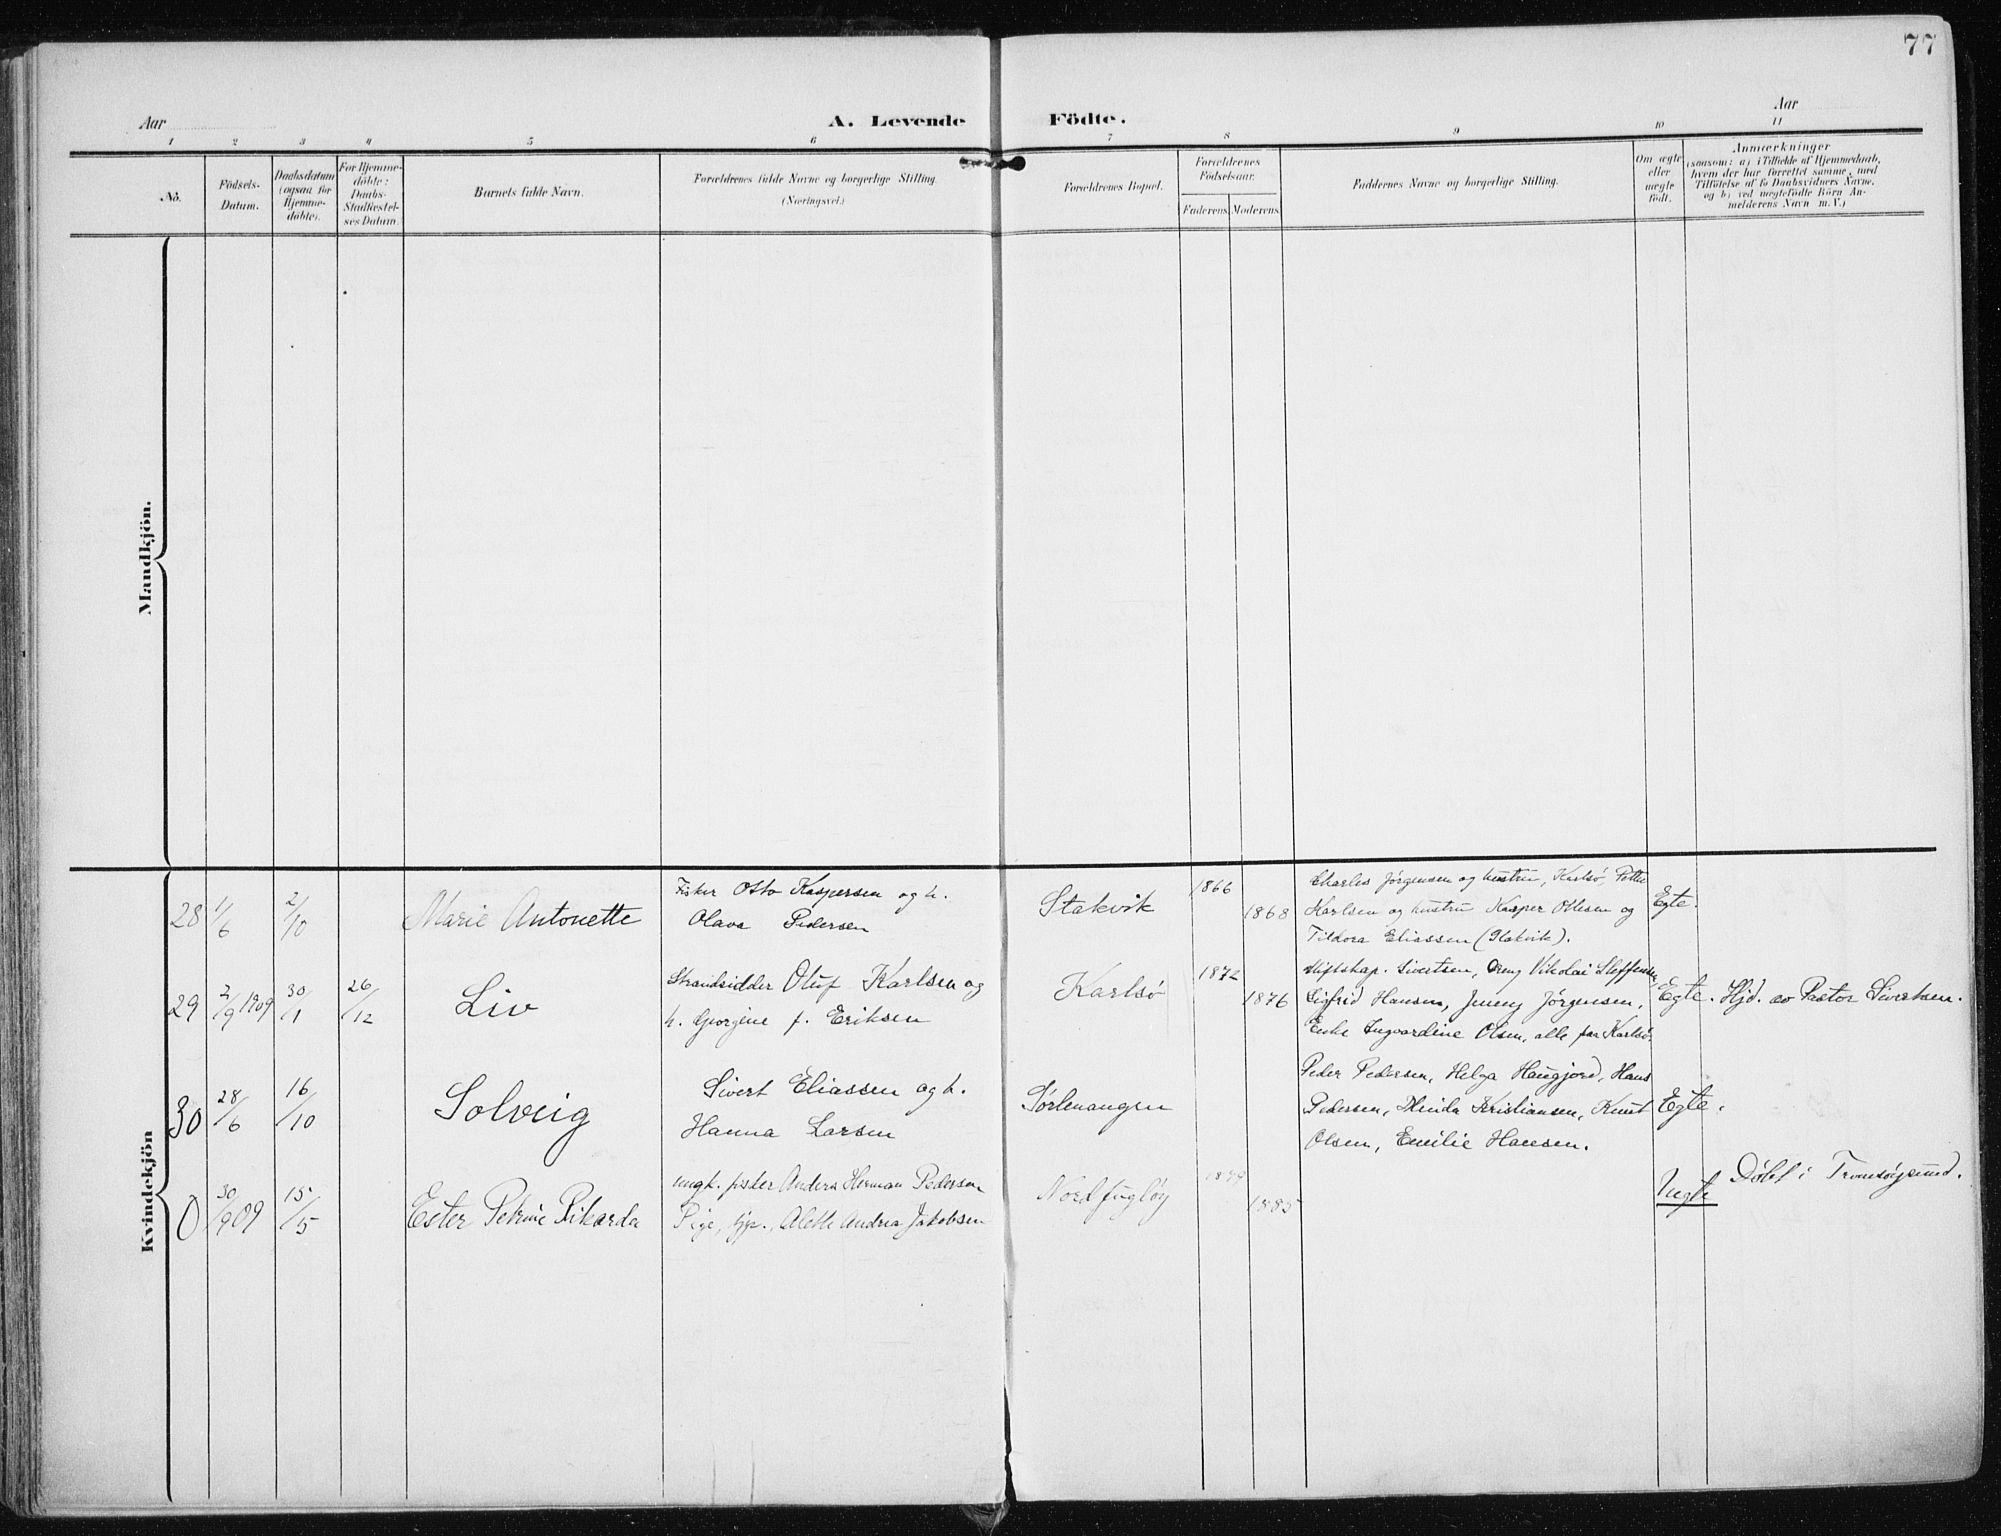 77
Aar
A. Levende Födte.
Aar
1 2 3 4 5 6 7 8 9 10 11
No.
Födsels-
Datum.
Daabsdatum
(ogsaa for
Hjemme-
döbte).
For Hjemme-
döbte:
Daabs-
Stadfæstel-
ses Datum.
Barnets fulde Navn.
Forældrenes fulde Navne og borgerlige Stilling
(Næringsvei.)
Forældrenes Bopæl.
Forældrenes
Födselsaar.
Faderens Moderens
Faddernes Navne og borgerlige Stilling.
Om ægte
eller
uægte
født.
Anmærkninger
(saasom: a) i Tilfælde af Hjemmedaab,
hvem der har forrettet samme, med
Tilföielse af to Daabsvidners Navne,
og b) ved uægtefödte Börn An-
melderens Navn m. V.)
Mandkjön.
Kvindekjön
28 1/6 2/10 Marie Antonette
Fisker Otto Kaspersen og h.
Olava Pedersen
Stakvik 1866 1868
Charles Jørgensen og hustru, Karlsö, Petter
Karlsen og hustru Kasper Olsen og
Tildora Eliassen (Stakvik).
Egte.
29 2/9 1909 30/1 26/12 Liv
Strandsidder Oluf Karlsen og
h. Georgine f. Eriksen
Karlsö 1872 1876
Stiftskap. Sivertsen, Dreng Nikolai Steffensen,
Sigfrid Hansen, Jenny Jørgensen,
Enke Ingvardine Olsen, alle paa Karlsö.
Egte. Hjd. av Pastor Sivertsen.
30 28/6 16/10 Solveig
Sivert Eliassen og h.
Hanna Larsen
Sörlenangen
Peder Pedersen, Helga Haugjord, Hans
Pedersen, Kristiansen, Knut
Olsen, Emilie Hansen.
Egte.
0 30/9 09 15/5 Ester Petrine Rikarda
ungk. fisker Anders Herman Pedersen
Pige, tjp., Alette Andrea Jakobsen
Nordfugløy 1879 1885
Uegte Døbt i Tromsøysund.